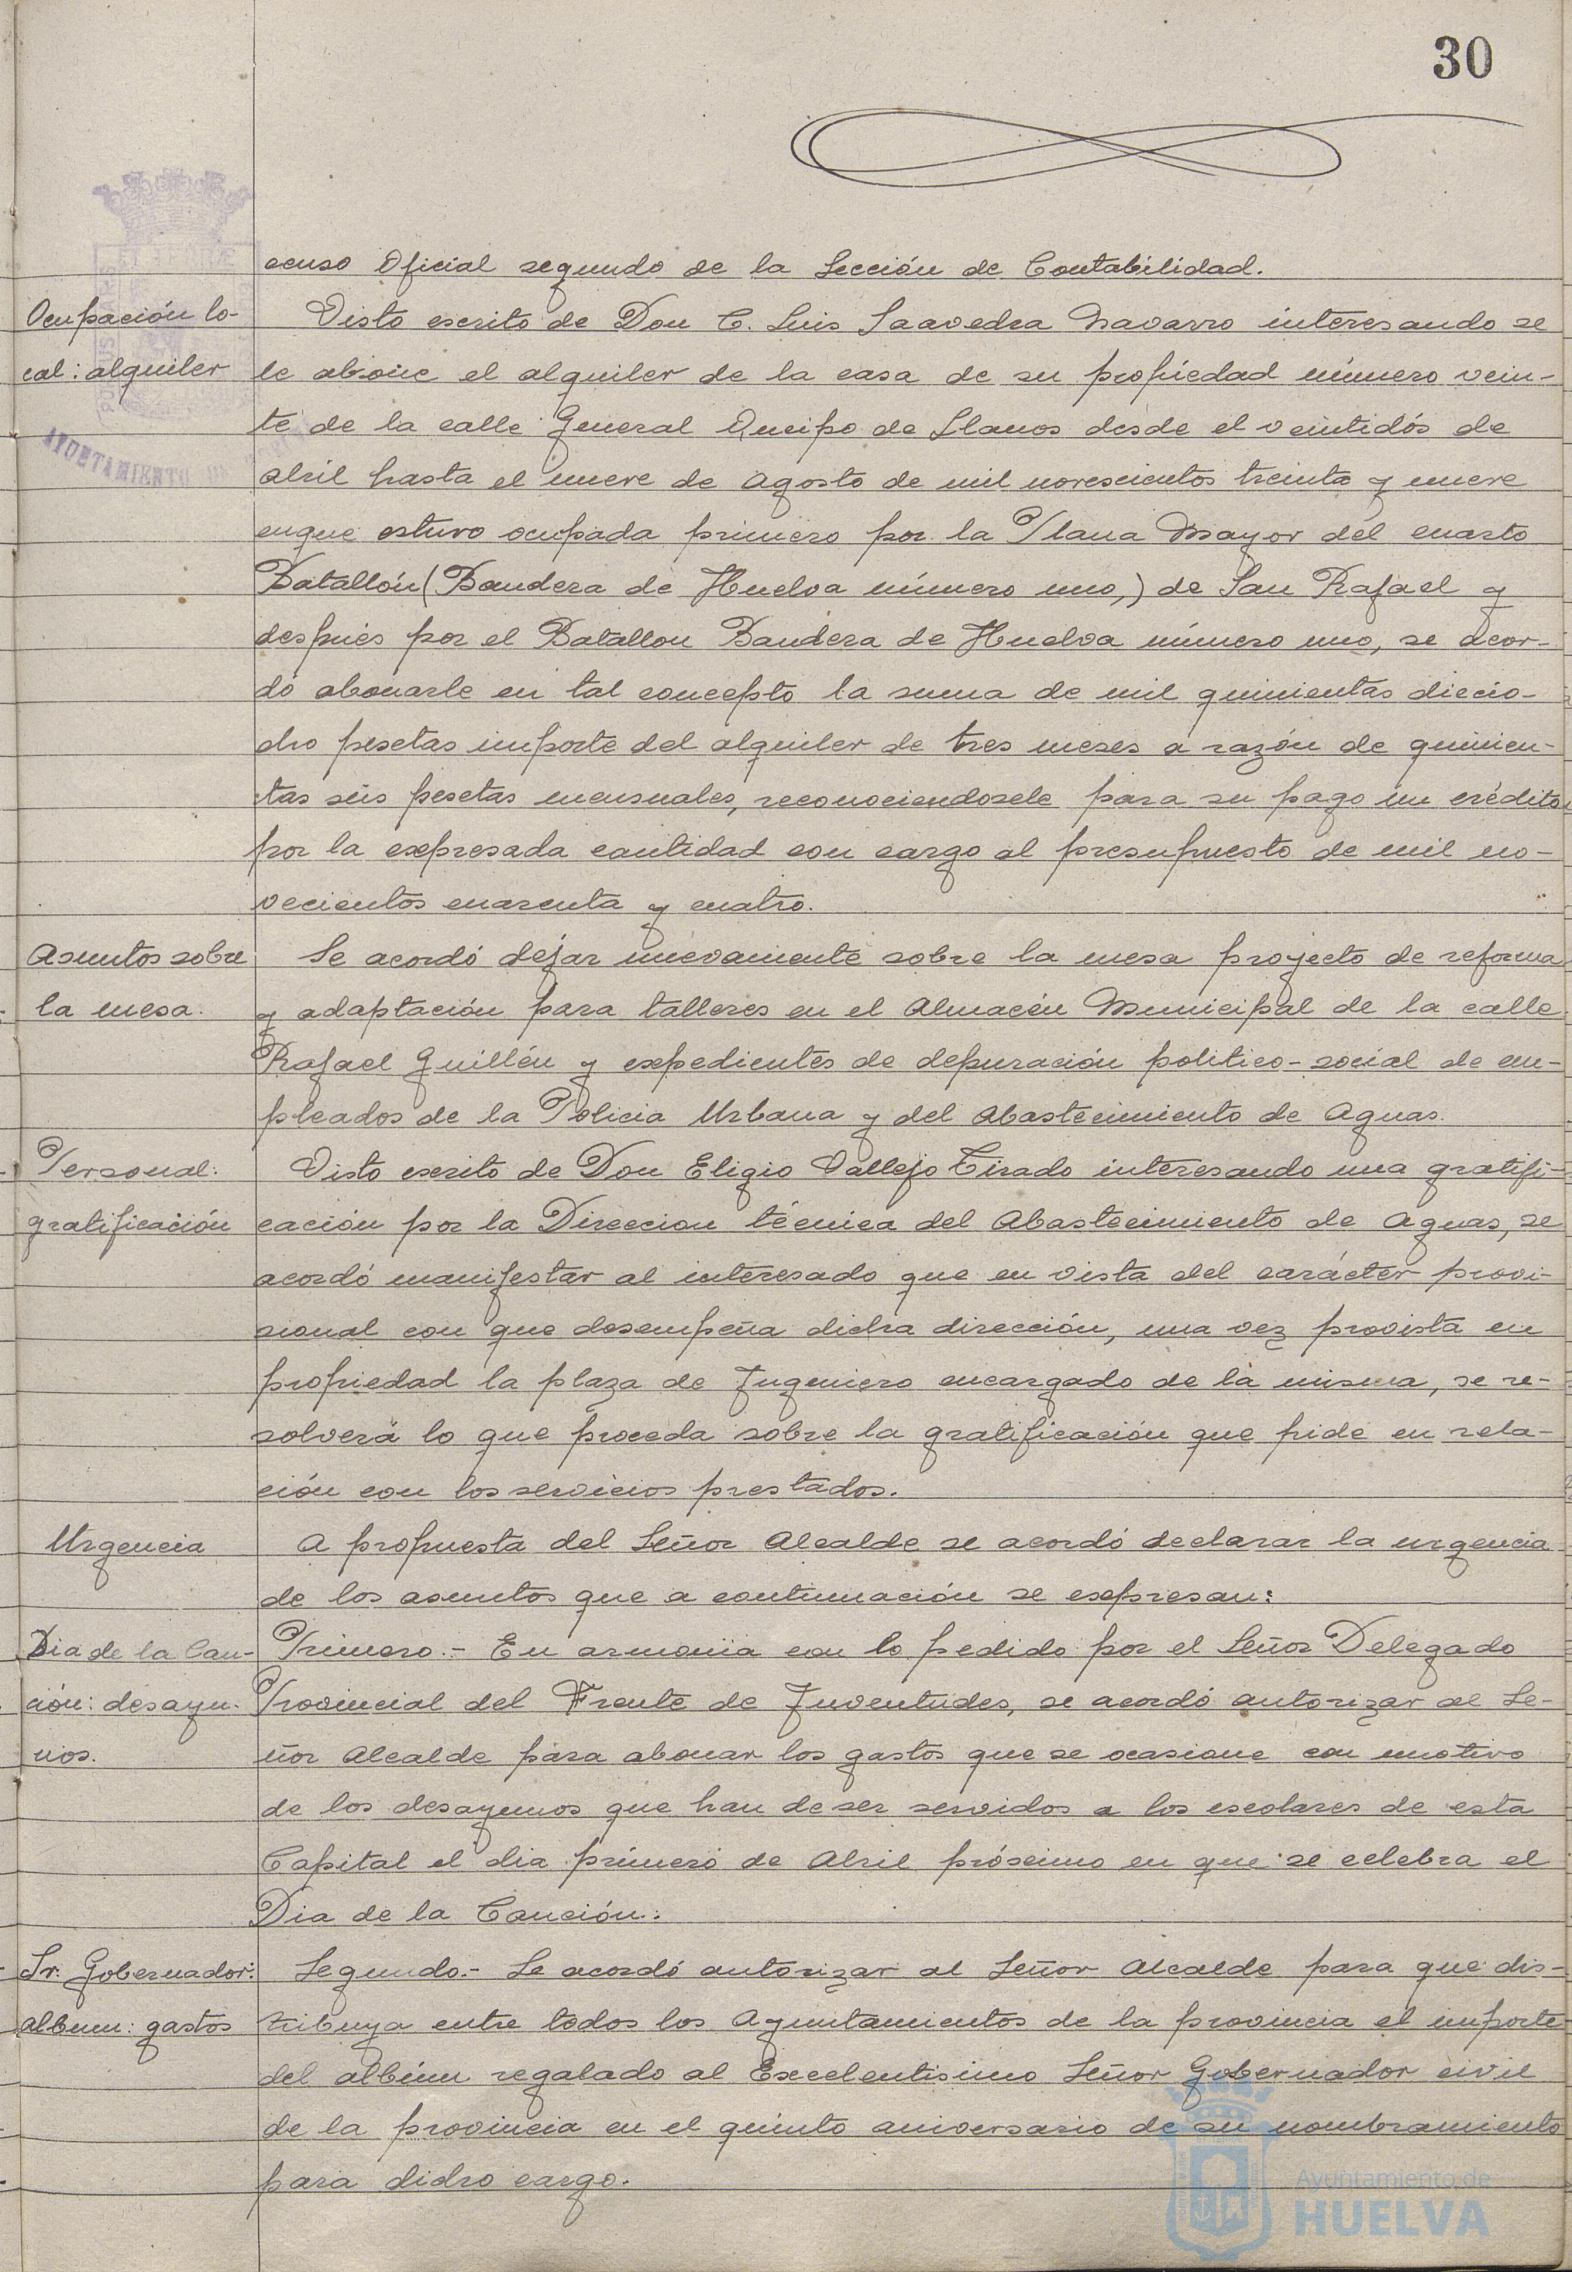 30
censo Oficial segundo de la Sección de Contabilidad.
Ocupación lo-
cal: alquiler
Visto escrito de Don C. Luis Saavedra Navarro interesando se
le abone el alquiler de la casa de su propiedad número vein-
te de la calle General Queipo de Llanos desde el veintidós de
abril hasta el nueve de Agosto de mil novescientos treinta y nueve
enque estuvo ocupada primero por la Plana Mayor del cuarto
Batallón (Bandera de Huelva número uno,) de San Rafael y
después por el Batallon Bandera de Huelva número uno, se acor-
dó abonarle en tal concepto la suma de mil quinientas diecio-
cho pesetas importe del alquiler de tres meses a razón de quinien-
tas seis pesetas mensuales, reconociendosele para su pago un crédito
por la expresada cantidad con cargo al presupuesto de mil no-
vecientos cuarenta y cuatro.
Asuntos sobre
la mesa.
Se acordó dejar nuevamente sobre la mesa proyecto de reforma
y adaptación para talleres en el Almacén Municipal de la calle
Rafael Guillén y expedientes de depuración politico-social de em-
pleados de la Policia Urbana y del Abastecimiento de Aguas.
Personal:
gratificación
Visto escrito de Don Eligio Vallejo Tirado interesando una gratifi-
cación por la Direccion técnica del Abastecimiento de Aguas, se
acordó manifestar al interesado que en vista del carácter provi-
sional con que desempeña dicha dirección, una vez provista en
propiedad la plaza de Ingeniero encargado de la misma, se re-
solverá lo que proceda sobre la gratificación que pide en rela-
ción con los servicios prestados.
Urgencia
A propuesta del Señor Alcalde se acordó declarar la urgencia
de los asuntos que a continuación se expresan:
Dia de la Can-
ción: desayu-
nos.
Primero.- En armonia con lo pedido por el Señor Delegado
Provincial del Frente de Juventudes, se acordó autorizar al Se-
ñor Alcalde para abonar los gastos que se ocasione con motivo
de los desayunos que han de ser servidos a los escolares de esta
Capital el dia primero de Abril próximo en que se celebra el
Dia de la Canción.
Sr. Gobernador:
album: gastos
Segundo.- Se acordó autorizar al Señor Alcalde para que dis-
tribuya entre todos los Ayuntamientos de la provincia el importe
del albúm regalado al Excelentisimo Señor Gobernador civil
de la provincia en el quinto aniversario de su nombramiento
para dicho cargo.
AYUNTAMIENTO DE
Ayuntamiento de
HUELVA